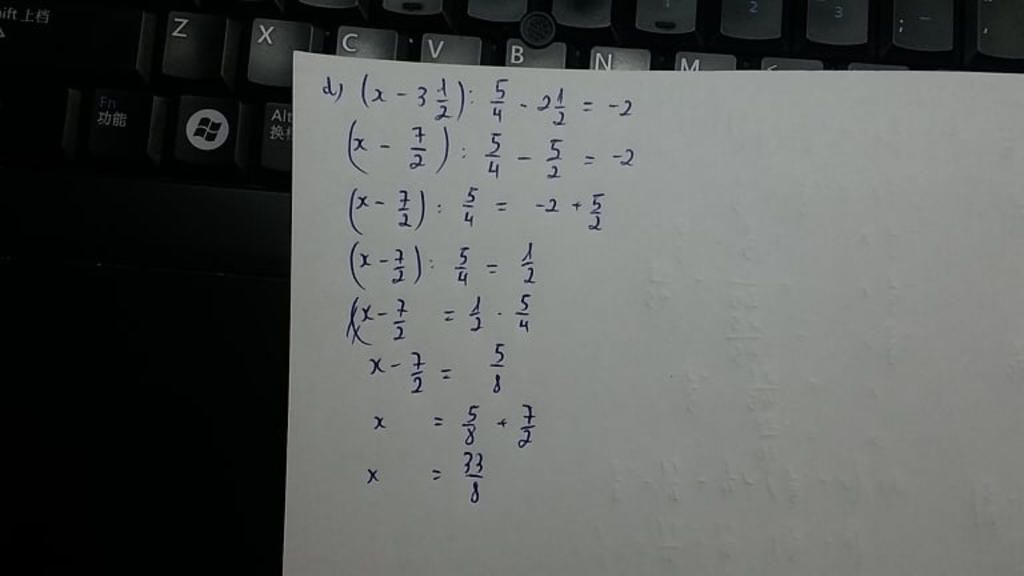 ift 上档
Z X C V B N M
1 2 3 ; -
Fn
功能
Alt
换
d) (x - 3 1/2) : 5/4 - 2 1/2 = -2
(x - 7/2) : 5/4 - 5/2 = -2
(x - 7/2) : 5/4 = -2 + 5/2
(x - 7/2) : 5/4 = 1/2
x - 7/2 = 1/2 · 5/4
x - 7/2 = 5/8
x = 5/8 + 7/2
x = 33/8